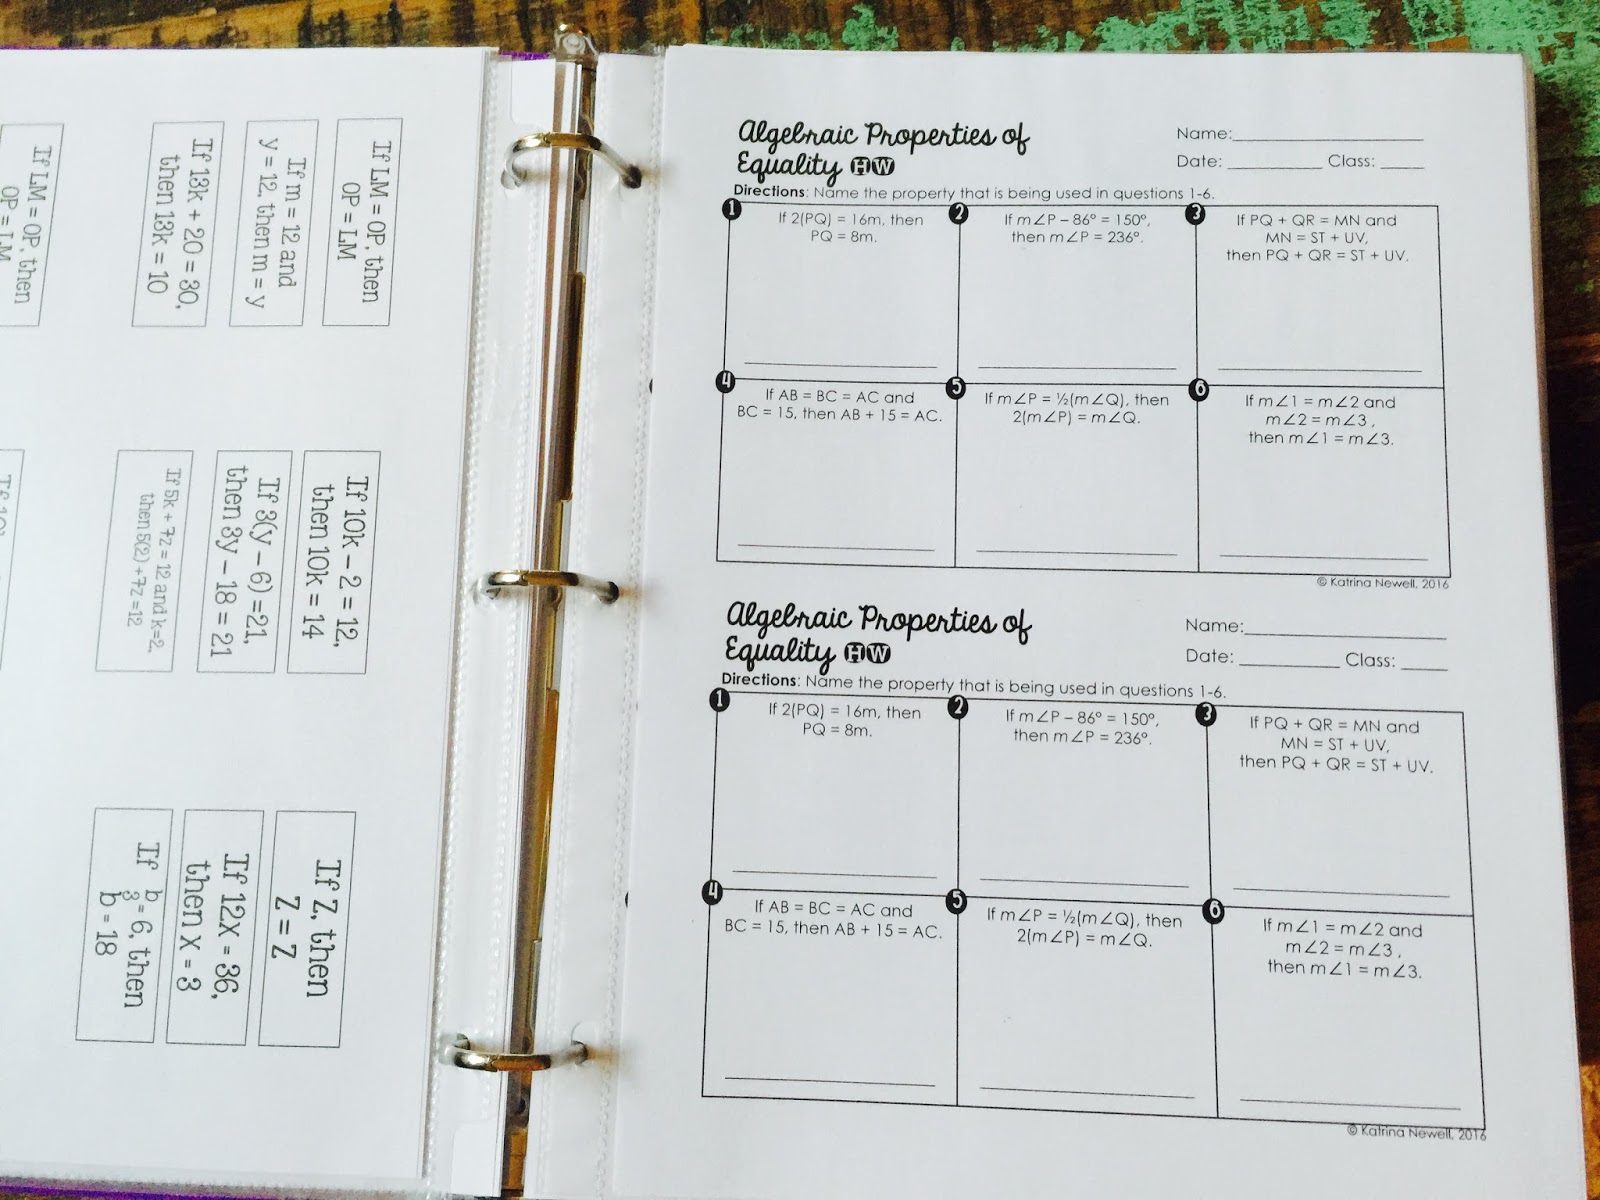 If LM = OP, then
OP = LM
If 13k + 20 = 30,
then 13k = 10
If m = 12 and
y = 12, then m = y
If LM = OP, then
OP = LM
If 5k + 7z = 12 and k=2,
then 5(2) + 7z =12
If 3(y – 6) =21,
then 3y – 18 = 21
If 10k – 2 = 12,
then 10k = 14
If b/3 = 6, then
b = 18
If 12x = 36,
then x = 3
If Z, then
Z = Z
Algebraic Properties of
Equality HW
Name:
Date: Class:
Directions: Name the property that is being used in questions 1-6.
1
If 2(PQ) = 16m, then
PQ = 8m.
2
If m∠P – 86° = 150°,
then m∠P = 236°.
3
If PQ + QR = MN and
MN = ST + UV,
then PQ + QR = ST + UV.
4
If AB = BC = AC and
BC = 15, then AB + 15 = AC.
5
If m∠P = ½(m∠Q), then
2(m∠P) = m∠Q.
6
If m∠1 = m∠2 and
m∠2 = m∠3 ,
then m∠1 = m∠3.
© Katrina Newell, 2016
Algebraic Properties of
Equality HW
Name:
Date: Class:
Directions: Name the property that is being used in questions 1-6.
1
If 2(PQ) = 16m, then
PQ = 8m.
2
If m∠P – 86° = 150°,
then m∠P = 236°.
3
If PQ + QR = MN and
MN = ST + UV,
then PQ + QR = ST + UV.
4
If AB = BC = AC and
BC = 15, then AB + 15 = AC.
5
If m∠P = ½(m∠Q), then
2(m∠P) = m∠Q.
6
If m∠1 = m∠2 and
m∠2 = m∠3 ,
then m∠1 = m∠3.
© Katrina Newell, 2016